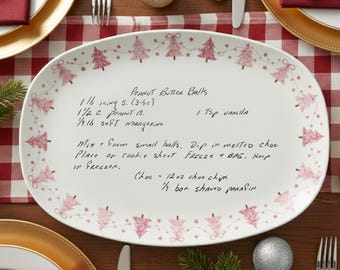 Peanut Butter Balls
1 lb icing S. (3½c)
1½ C peanut B. 1 Tsp vanilla
¼ lb soft margarine
Mix + form small balls. Dip in melted choc
Place on cookie sheet freeze + BAG. Keep
in freezer.
Choc = 12 oz choc chips
¼ bar shaved parafin